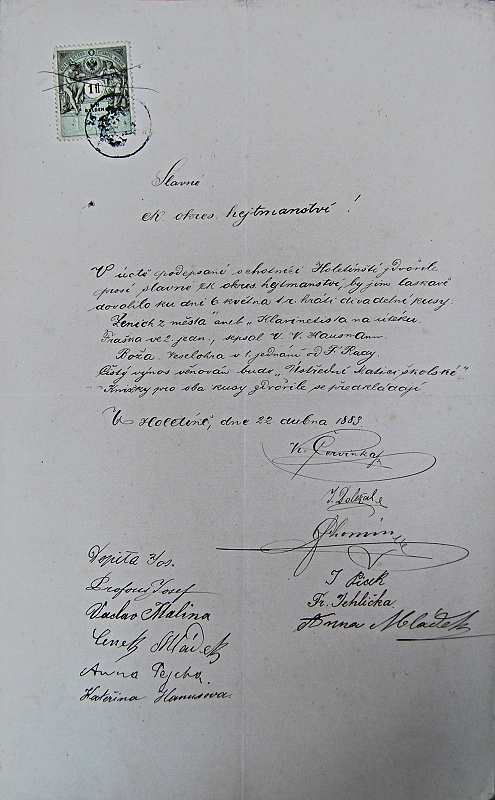 1 fl
Slavné
ck okres. hejtmanství!
V úctě podepsaní ochotníci Holetínští zdvořile
prosí slavné ck okres hejtmanství, by jim laskavě
dovolilo ku dni 6 května t r. hráti divadelní kusy.
Ženich z města" aneb „Klarinetista na útěku.
Fraška ve 2 jedn., sepsal V. V. Hausmann.
Róža. Veselohra v 1 jednání od F. Rady.
Čistý výnos věnován bude „Ústřední Matici školské"
Knížky pro oba kusy zdvořile se předkládají
V Holetíně, dne 22 dubna 1883.
Červinka
J. Doležal
Chomín
Dopita Jos.
Josef
J Písek
Václav Malina
Fr. Jehlička
Čeněk Mládek
Anna Mládek
Anna Pejcha.
Kateřina Hanusova.